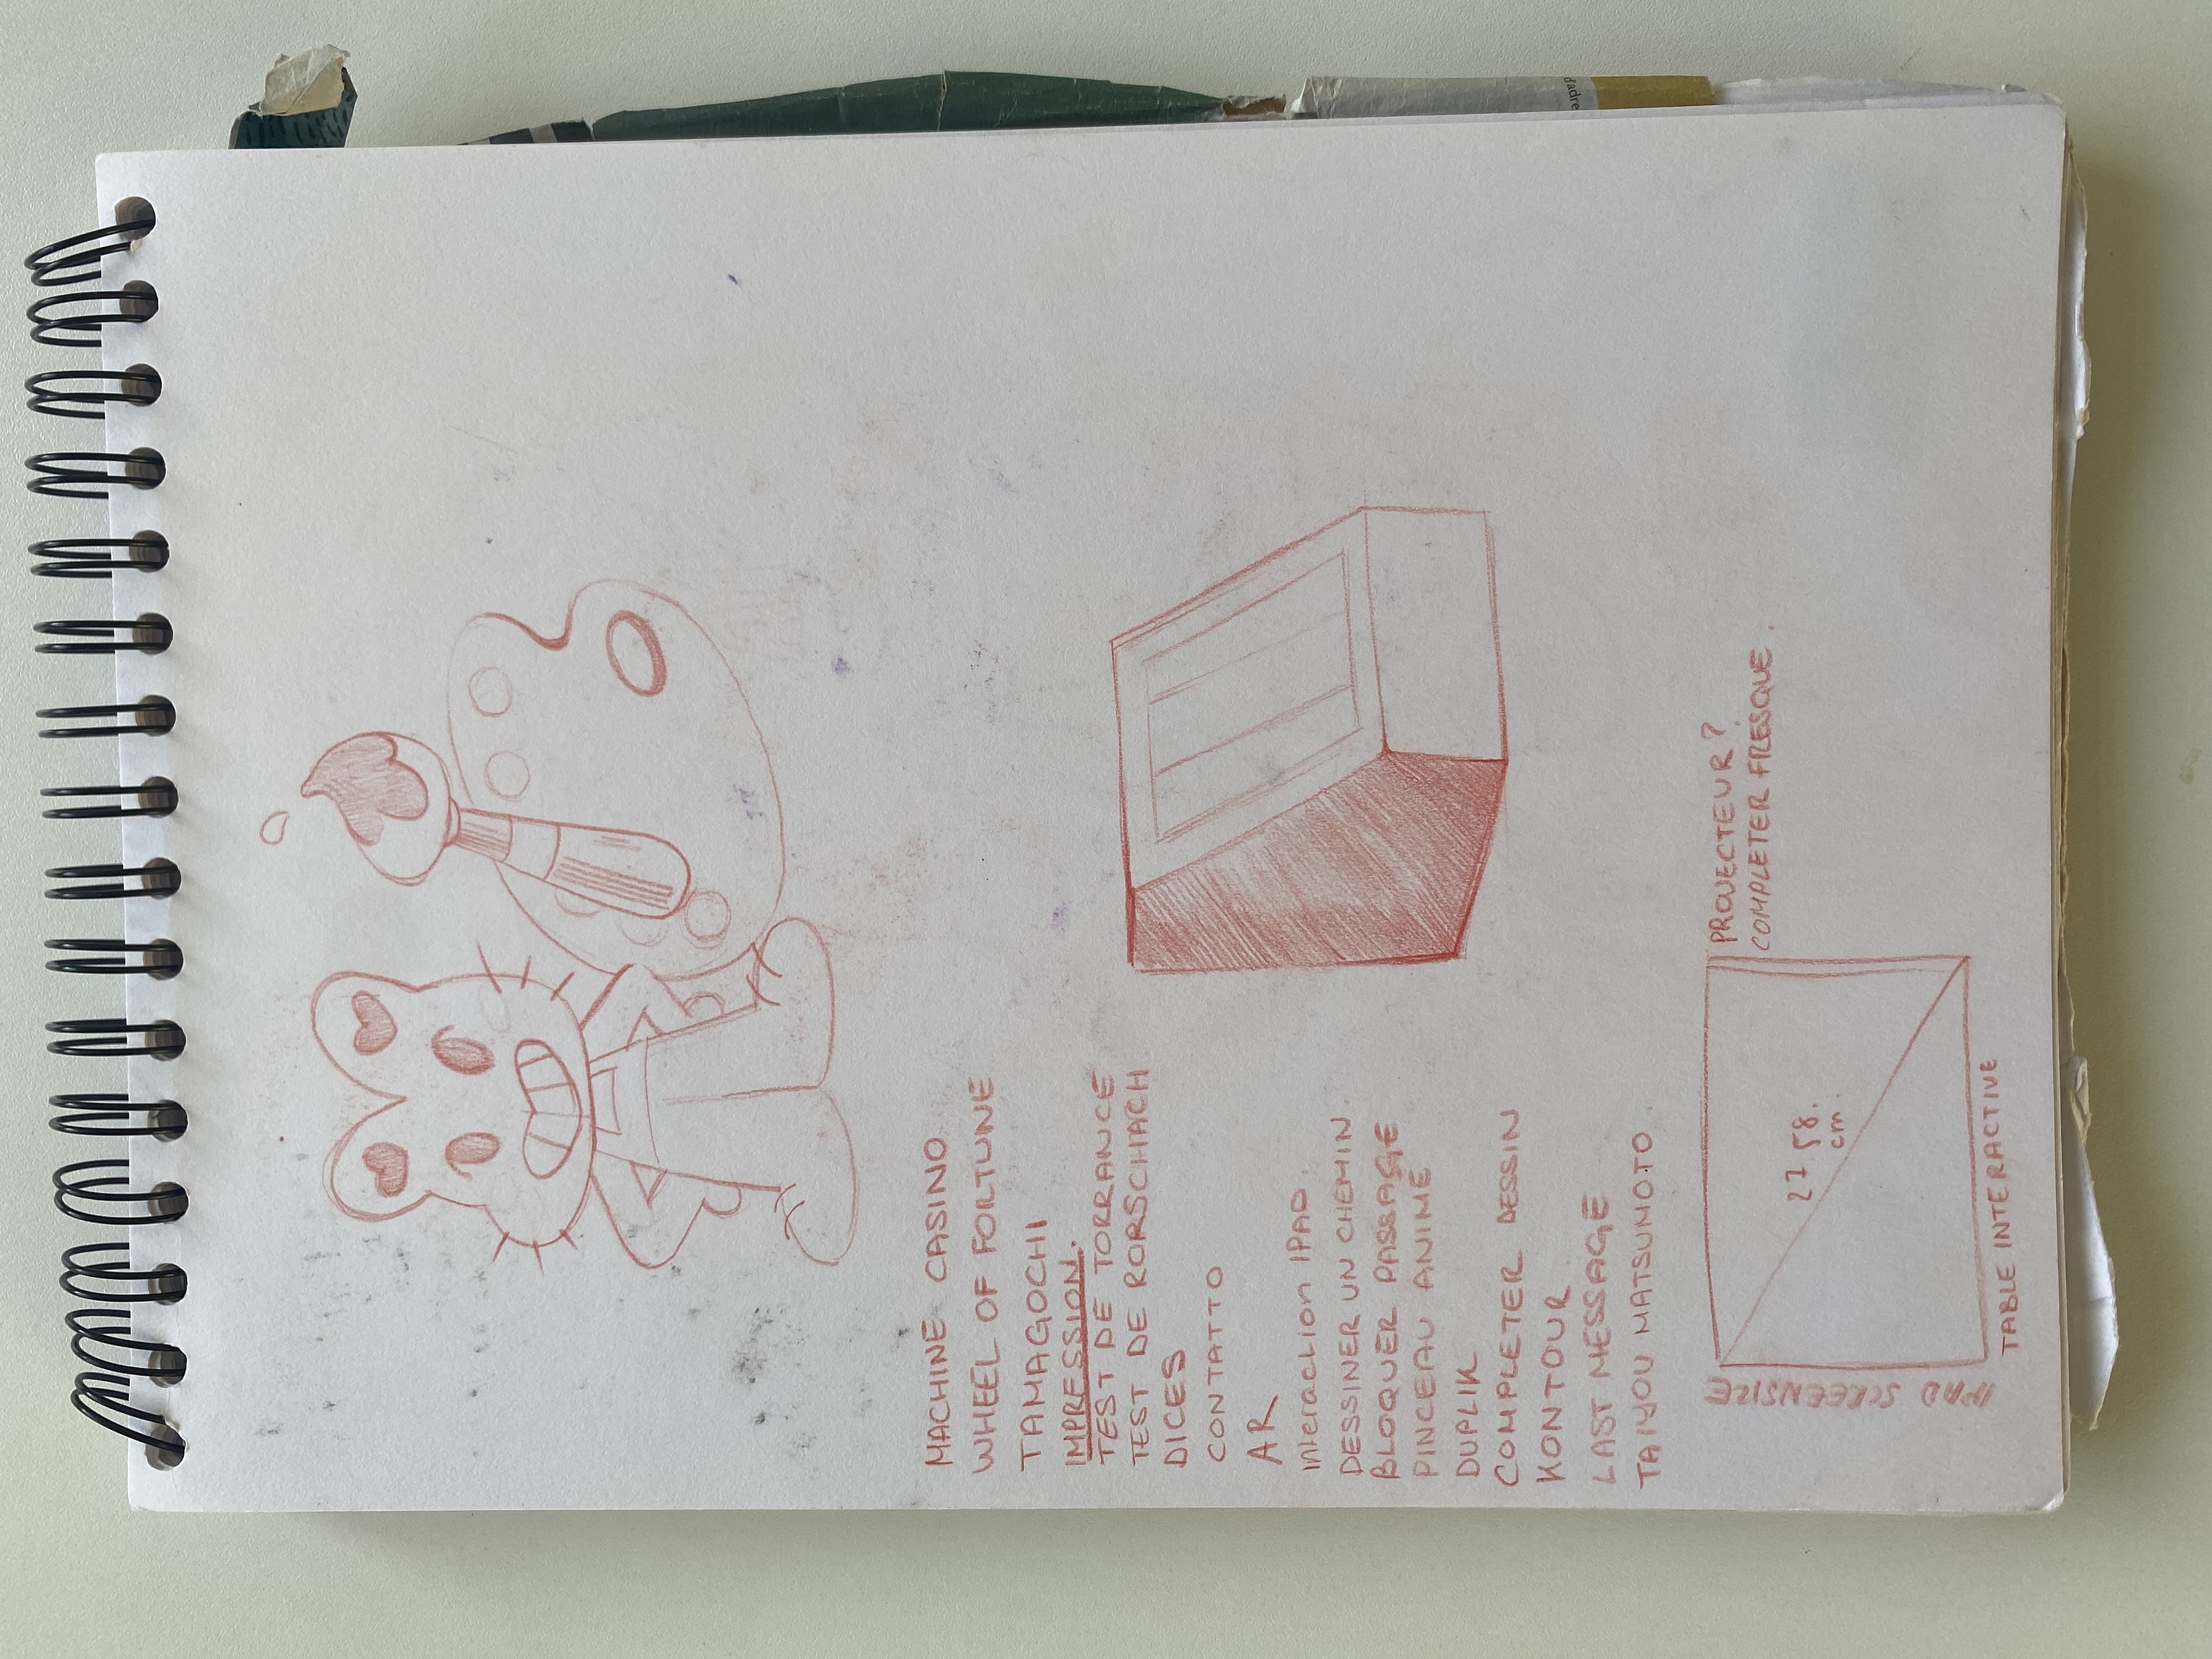 MACHINE CASINO
WHEEL OF FORTUNE
TAMAGOCHI
IMPRESSION.
TEST DE TORRANCE
TEST DE RORSCHACH
DICES
CONTATTO
AR
interaction IPAD.
DESSINER UN CHEMIN.
BLOQUER PASSAGE
PINCEAU ANIME
DUPLIK
COMPLETER DESSIN
KONTOUR
LAST MESSAGE
TAIYOU MATSUMOTO.
IPAD SCREENSIZE
27 58.
cm.
TABLE INTERACTIVE
PROJECTEUR?
COMPLETER FRESQUE.